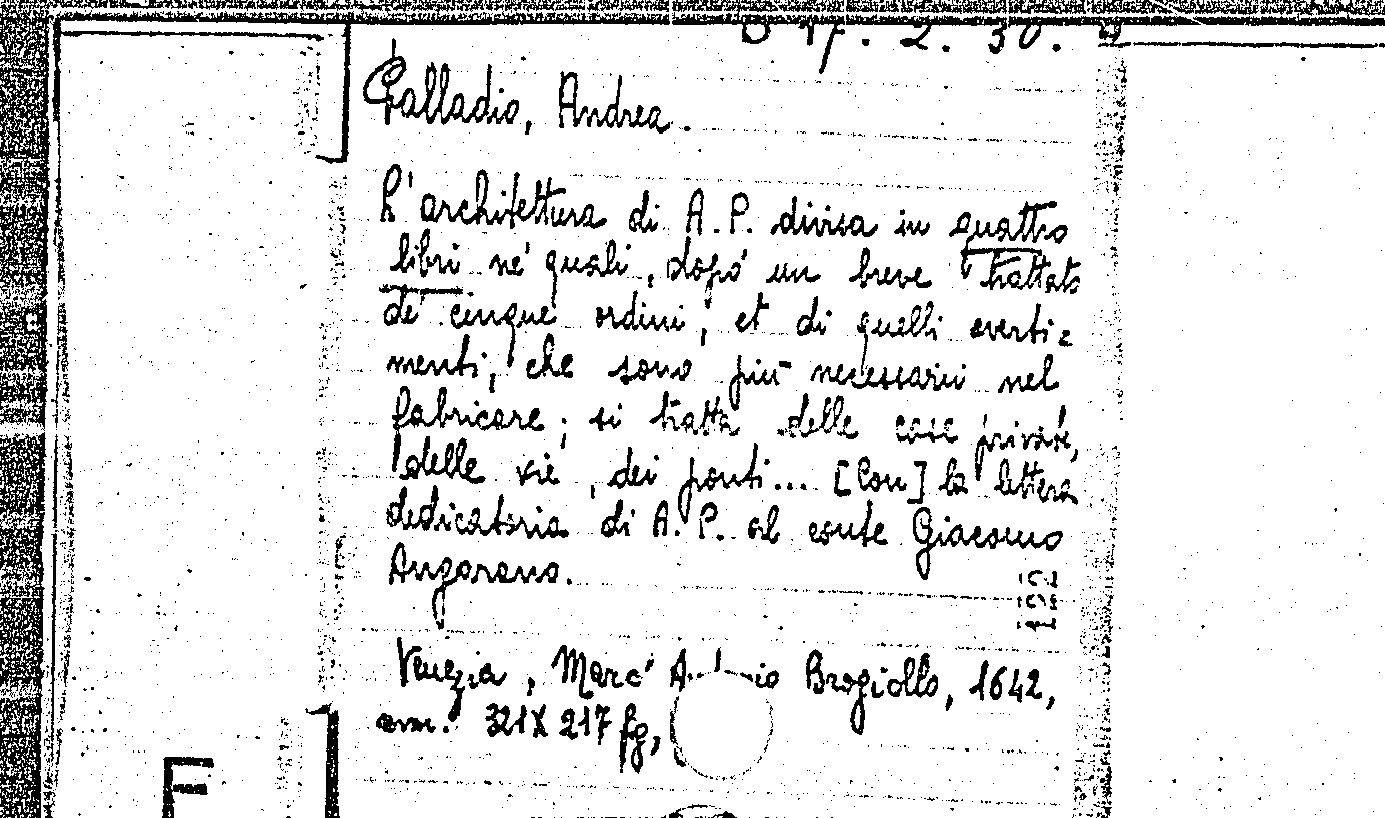 B 17. 2. 30.
Palladio, Andrea.
L'architettura di A.P. divisa in quattro
libri ne' quali, dopo un breve trattato
de' cinque ordini, et di quelli averti=
menti, che sono più necessarii nel
fabricare; si tratta delle case private,
delle vie, dei ponti... [Con] la lettera
dedicatoria di A.P. al conte Giacomo
Angarano.
Venezia, Marc' Brogiollo, 1642,
mm. 321X217 fg,
F